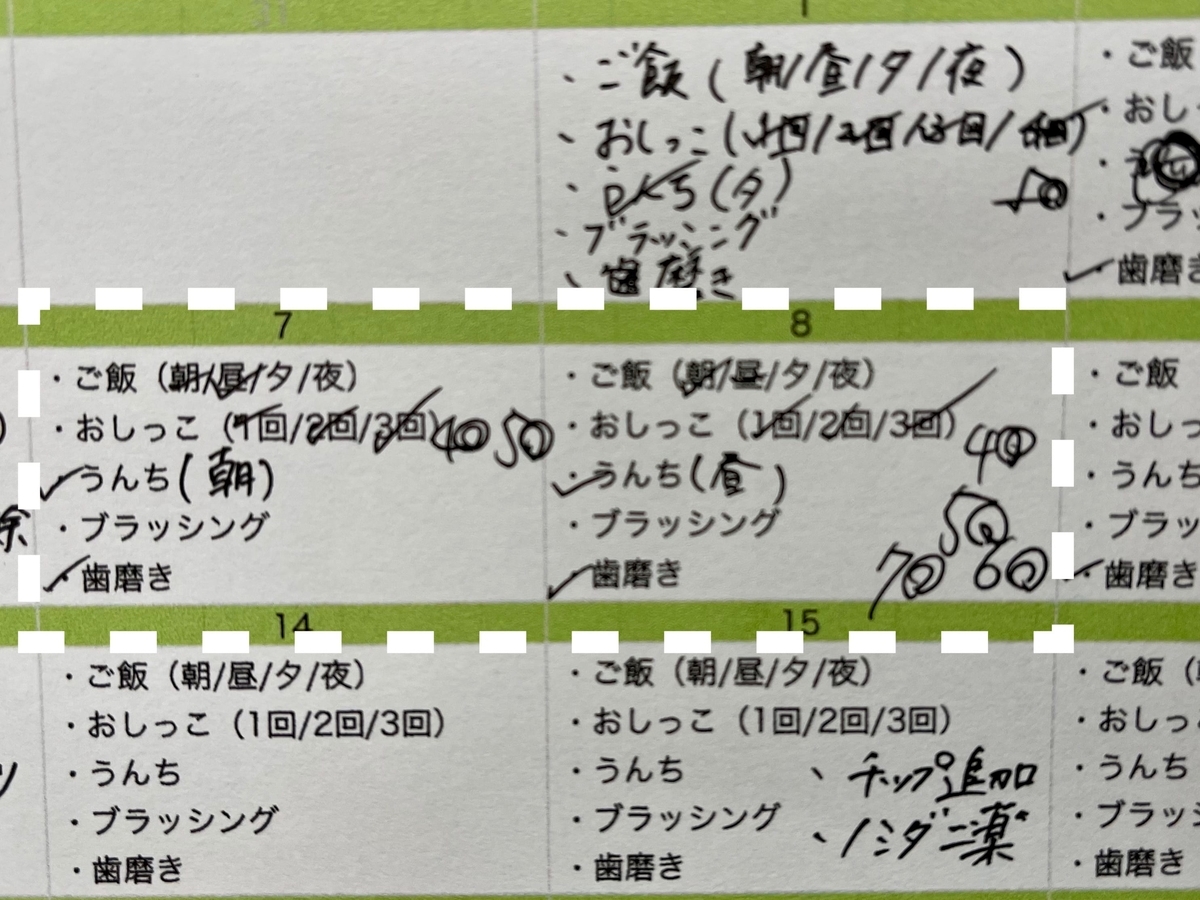 1
・ご飯(朝/昼/夕/夜)
・おしっこ(1回/2回/3回/4回)
(夕)
・ブラッシング
・歯磨き
・ご飯
・おし
・ブラッ
・歯磨き
7
・ご飯(朝/昼/夕/夜)
・おしっこ(1回/2回/3回)④⑤
・うんち(朝)
・ブラッシング
・歯磨き
8
・ご飯(朝/昼/夕/夜)
・おしっこ(1回/2回/3回)
4回
・うんち(昼)
・ブラッシング
・歯磨き
・ご飯
・おしっ
・うんち
・ブラッ
・歯磨き
余
14
・ご飯(朝/昼/夕/夜)
・おしっこ(1回/2回/3回)
・うんち
・ブラッシング
・歯磨き
15
・ご飯(朝/昼/夕/夜)
・おしっこ(1回/2回/3回)
・うんち
・ブラッシング
・歯磨き
、チップ追加
、ノミダニ薬
・ご飯(
・おしっこ
・うんち
・ブラッシ
・歯磨き